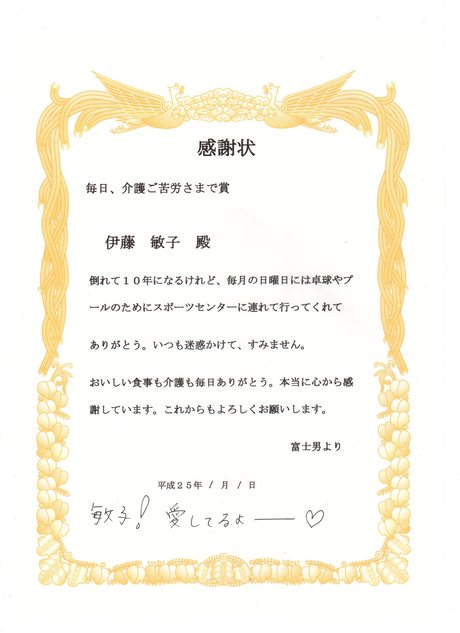 感謝状
毎日、介護ご苦労さまで賞
伊藤 敏子 殿
倒れて１０年になるけれど、毎月の日曜日には卓球やプ
ールのためにスポーツセンターに連れて行ってくれて
ありがとう。いつも迷惑かけて、すみません。
おいしい食事も介護も毎日ありがとう。本当に心から感
謝しています。これからもよろしくお願いします。
富士男より
平成２５年 / 月 / 日
敏子! 愛してるよ――♡